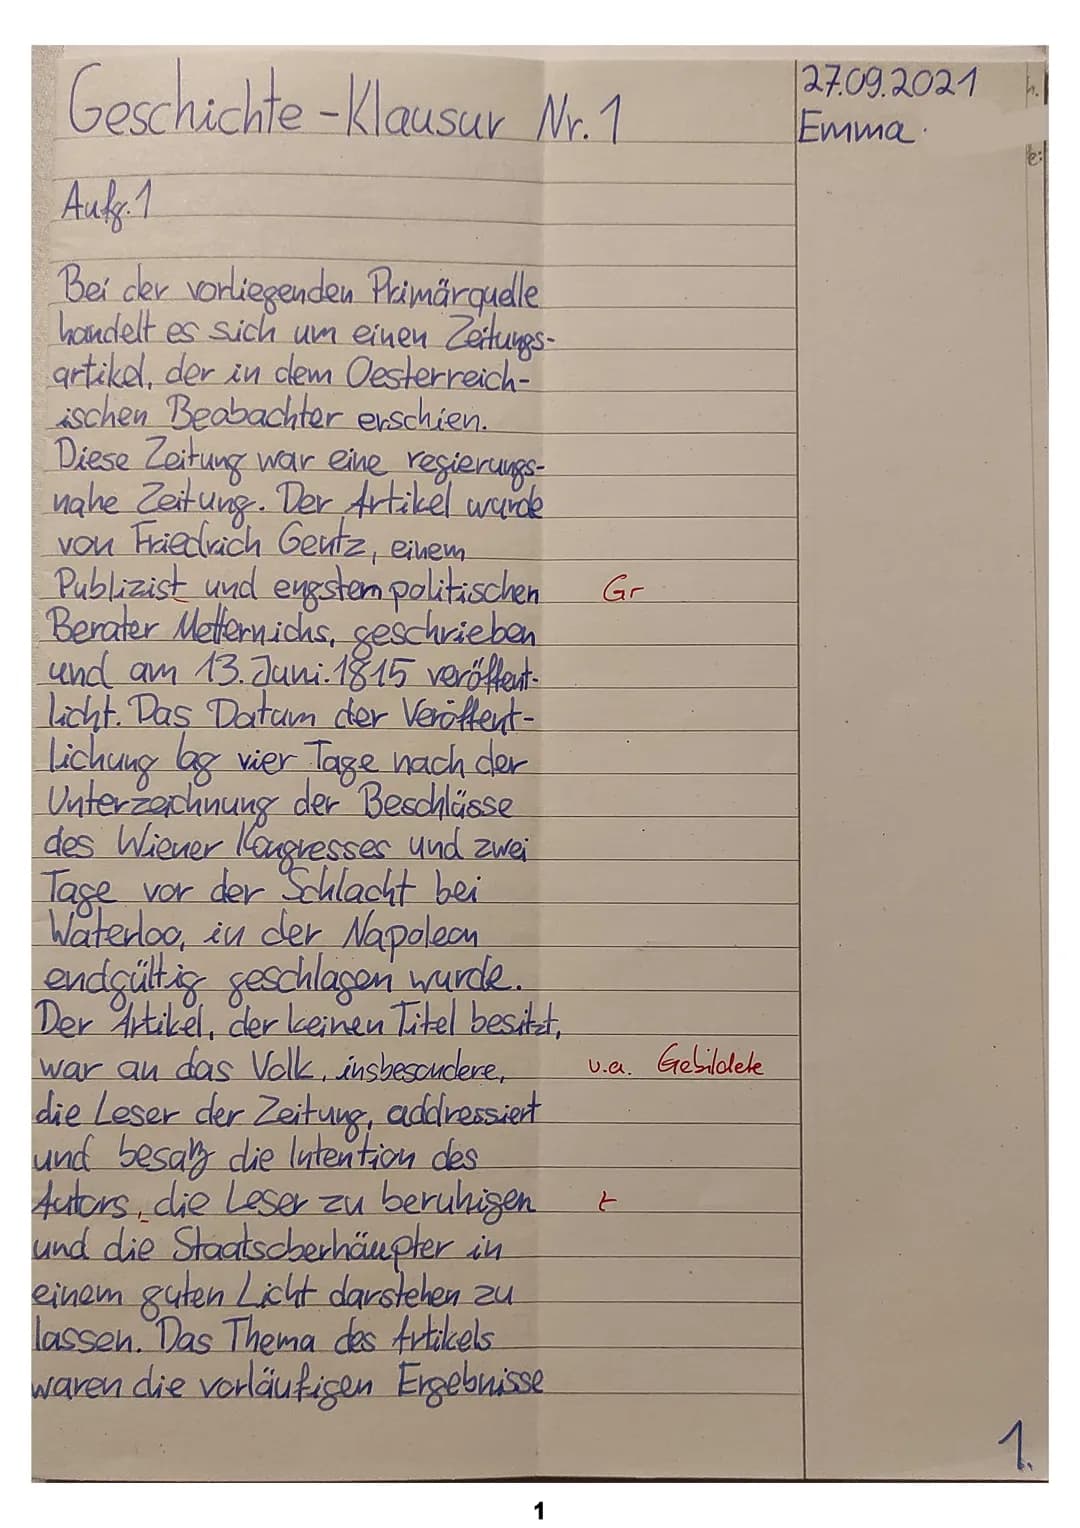 Geschichte-Klausur Nr. 1
27.09.2021
Emma
Aufg. 1
Bei der vorliegenden Primärquelle
handelt es sich um einen Zeitungs-
artikel, der in dem Oesterreich-
ischen Beobachter erschien.
Diese Zeitung war eine regierungs-
nahe Zeitung. Der Artikel wurde
von Friedrich Gentz, einem
Publizist und engstem politischen Gr
Berater Metternichs, geschrieben
und am 13. Juni. 1815 veröffent-
licht. Das Datum der Veröffent-
lichung lag vier Tage nach der
Unterzeichnung der Beschlüsse
des Wiener Kongresses und zwei
Tage vor der Schlacht bei
Waterloo, in der Napoleon
endgültig geschlagen wurde.
Der Artikel, der keinen Titel besitzt,
war an das Volk, insbesondere, u.a. Gebildete
die Leser der Zeitung, addressiert
und besaß die Intention des
Autors, die Leser zu beruhigen
und die Staatsoberhäupter in
einem guten Licht darstehen zu
lassen. Das Thema des Artikels
waren die vorläufigen Ergebnisse
1.
1